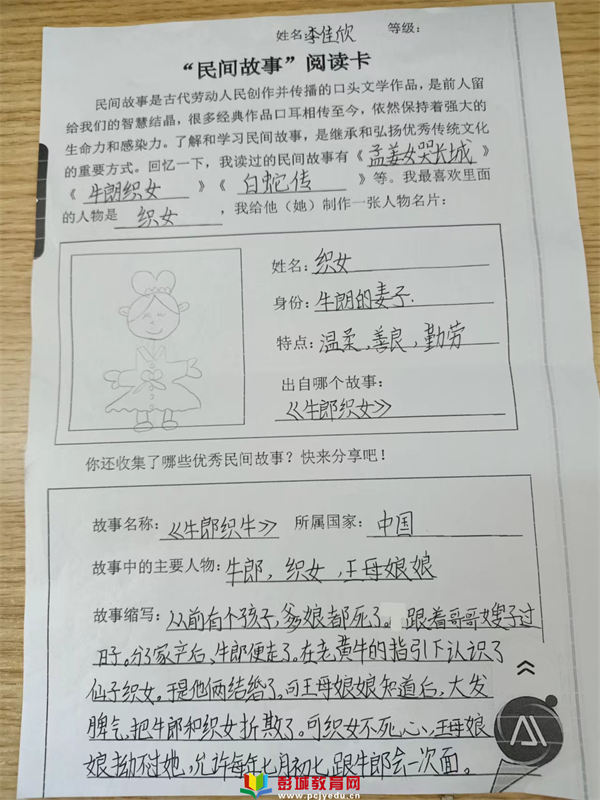 姓名:李佳欣 等级:
“民间故事”阅读卡
民间故事是古代劳动人民创作并传播的口头文学作品，是前人留
给我们的智慧结晶，很多经典作品口耳相传至今，依然保持着强大的
生命力和感染力。了解和学习民间故事，是继承和弘扬优秀传统文化
的重要方式。回忆一下，我读过的民间故事有《孟姜女哭长城》
《牛朗织女》《白蛇传》等。我最喜欢里面
的人物是 织女 ，我给他（她）制作一张人物名片：
姓名：织女
身份：牛朗的妻子.
特点：温柔，善良，勤劳
出自哪个故事：
《牛郎织女》
你还收集了哪些优秀民间故事？快来分享吧！
故事名称：《牛郎织牛》 所属国家：中国
故事中的主要人物：牛郎，织女，王母娘娘
故事缩写：从前有个孩子，爹娘都死了。跟着哥哥嫂子过
日子。分了家产后，牛郎便走了。在老黄牛的指引下认识了
仙子织女。于是他俩结婚了。可王母娘娘知道后，大发
脾气，把牛郎和织女拆散了。可织女不死心，王母娘
娘劝不过她，允许每年七月初七，跟牛郎会一次面。
彭城教育网
www.pcjyedu.cn